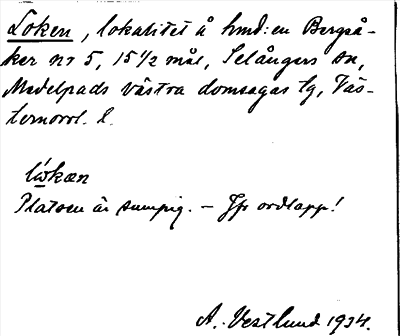 Loken, lokalitet å hmd:en Bergså-
ker nr 5, 15 1/2 mål, Selångers sn,
Medelpads västra domsagas tg, Väs-
ternorrl. l.
lωkæn
Platsen är sumpig. – Jfr ordlapp!
A. Vestlund 1934.